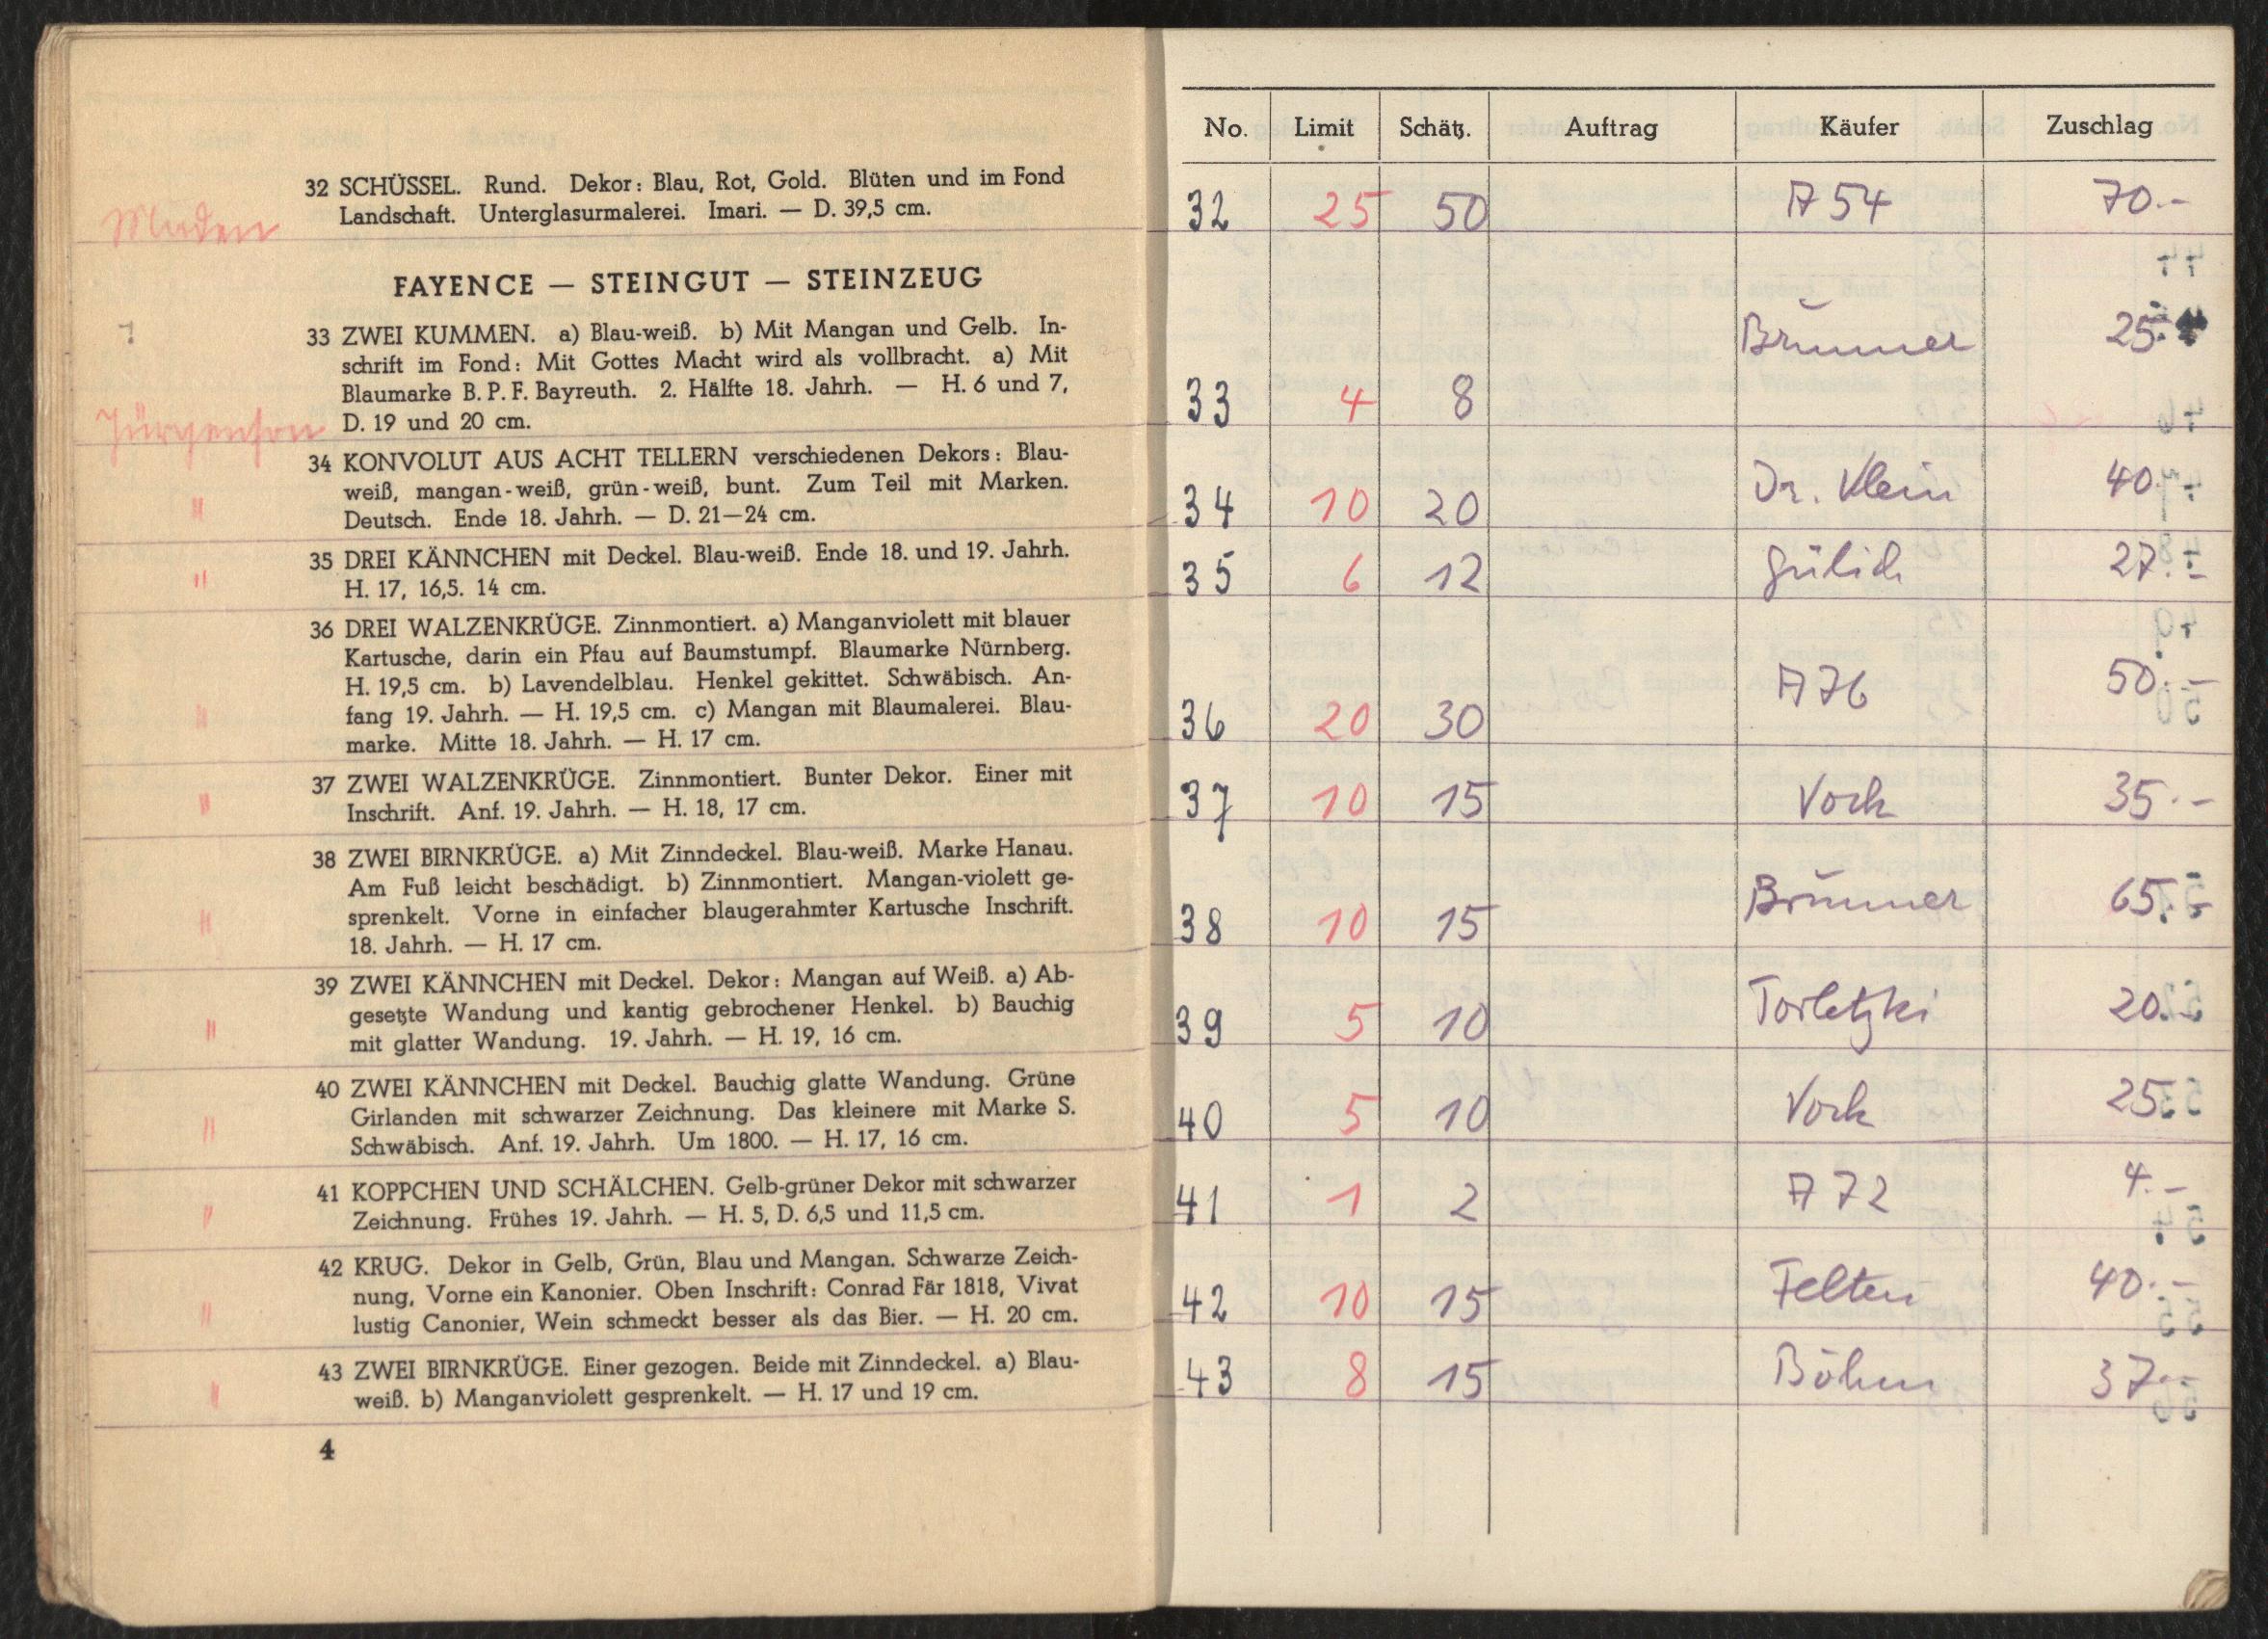 32 SCHÜSSEL. Rund. Dekor: Blau, Rot, Gold. Blüten und im Fond
Landschaft. Unterglasurmalerei. Imari. — D. 39,5 cm.
FAYENCE — STEINGUT — STEINZEUG
33 ZWEI KUMMEN. a) Blau-weiß. b) Mit Mangan und Gelb. In-
schrift im Fond: Mit Gottes Macht wird als vollbracht. a) Mit
Blaumarke B. P. F. Bayreuth. 2. Hälfte 18. Jahrh. — H. 6 und 7,
Jürgensen D. 19 und 20 cm.
34 KONVOLUT AUS ACHT TELLERN verschiedenen Dekors: Blau-
weiß, mangan-weiß, grün-weiß, bunt. Zum Teil mit Marken.
" Deutsch. Ende 18. Jahrh. — D. 21—24 cm.
35 DREI KÄNNCHEN mit Deckel. Blau-weiß. Ende 18. und 19. Jahrh.
" H. 17, 16,5. 14 cm.
36 DREI WALZENKRÜGE. Zinnmontiert. a) Manganviolett mit blauer
Kartusche, darin ein Pfau auf Baumstumpf. Blaumarke Nürnberg.
H. 19,5 cm. b) Lavendelblau. Henkel gekittet. Schwäbisch. An-
" fang 19. Jahrh. — H. 19,5 cm. c) Mangan mit Blaumalerei. Blau-
marke. Mitte 18. Jahrh. — H. 17 cm.
37 ZWEI WALZENKRÜGE. Zinnmontiert. Bunter Dekor. Einer mit
" Inschrift. Anf. 19. Jahrh. — H. 18, 17 cm.
38 ZWEI BIRNKRÜGE. a) Mit Zinndeckel. Blau-weiß. Marke Hanau.
Am Fuß leicht beschädigt. b) Zinnmontiert. Mangan-violett ge-
" sprenkelt. Vorne in einfacher blaugerahmter Kartusche Inschrift.
18. Jahrh. — H. 17 cm.
39 ZWEI KÄNNCHEN mit Deckel. Dekor: Mangan auf Weiß. a) Ab-
gesetzte Wandung und kantig gebrochener Henkel. b) Bauchig
" mit glatter Wandung. 19. Jahrh. — H. 19, 16 cm.
40 ZWEI KÄNNCHEN mit Deckel. Bauchig glatte Wandung. Grüne
Girlanden mit schwarzer Zeichnung. Das kleinere mit Marke S.
" Schwäbisch. Anf. 19. Jahrh. Um 1800. — H. 17, 16 cm.
41 KOPPCHEN UND SCHÄLCHEN. Gelb-grüner Dekor mit schwarzer
" Zeichnung. Frühes 19. Jahrh. — H. 5, D. 6,5 und 11,5 cm.
42 KRUG. Dekor in Gelb, Grün, Blau und Mangan. Schwarze Zeich-
nung, Vorne ein Kanonier. Oben Inschrift: Conrad Fär 1818, Vivat
" lustig Canonier, Wein schmeckt besser als das Bier. — H. 20 cm.
43 ZWEI BIRNKRÜGE. Einer gezogen. Beide mit Zinndeckel. a) Blau-
" weiß. b) Manganviolett gesprenkelt. — H. 17 und 19 cm.
4
No. Limit Schätz. Auftrag Käufer Zuschlag
32 25 50 A 54 70.-
33 4 8 Brümmer 25.-
34 10 20 Dr. Klein 40.-
35 6 12 Gülich 27.-
36 20 30 A 76 50.-
37 10 15 Vock 35.-
38 10 15 Brümmer 65.-
39 5 10 Torletzki 20.-
40 5 10 Vock 25.-
41 1 2 A 72 4.-
42 10 15 Felten 40.-
43 8 15 Böhm 37.-